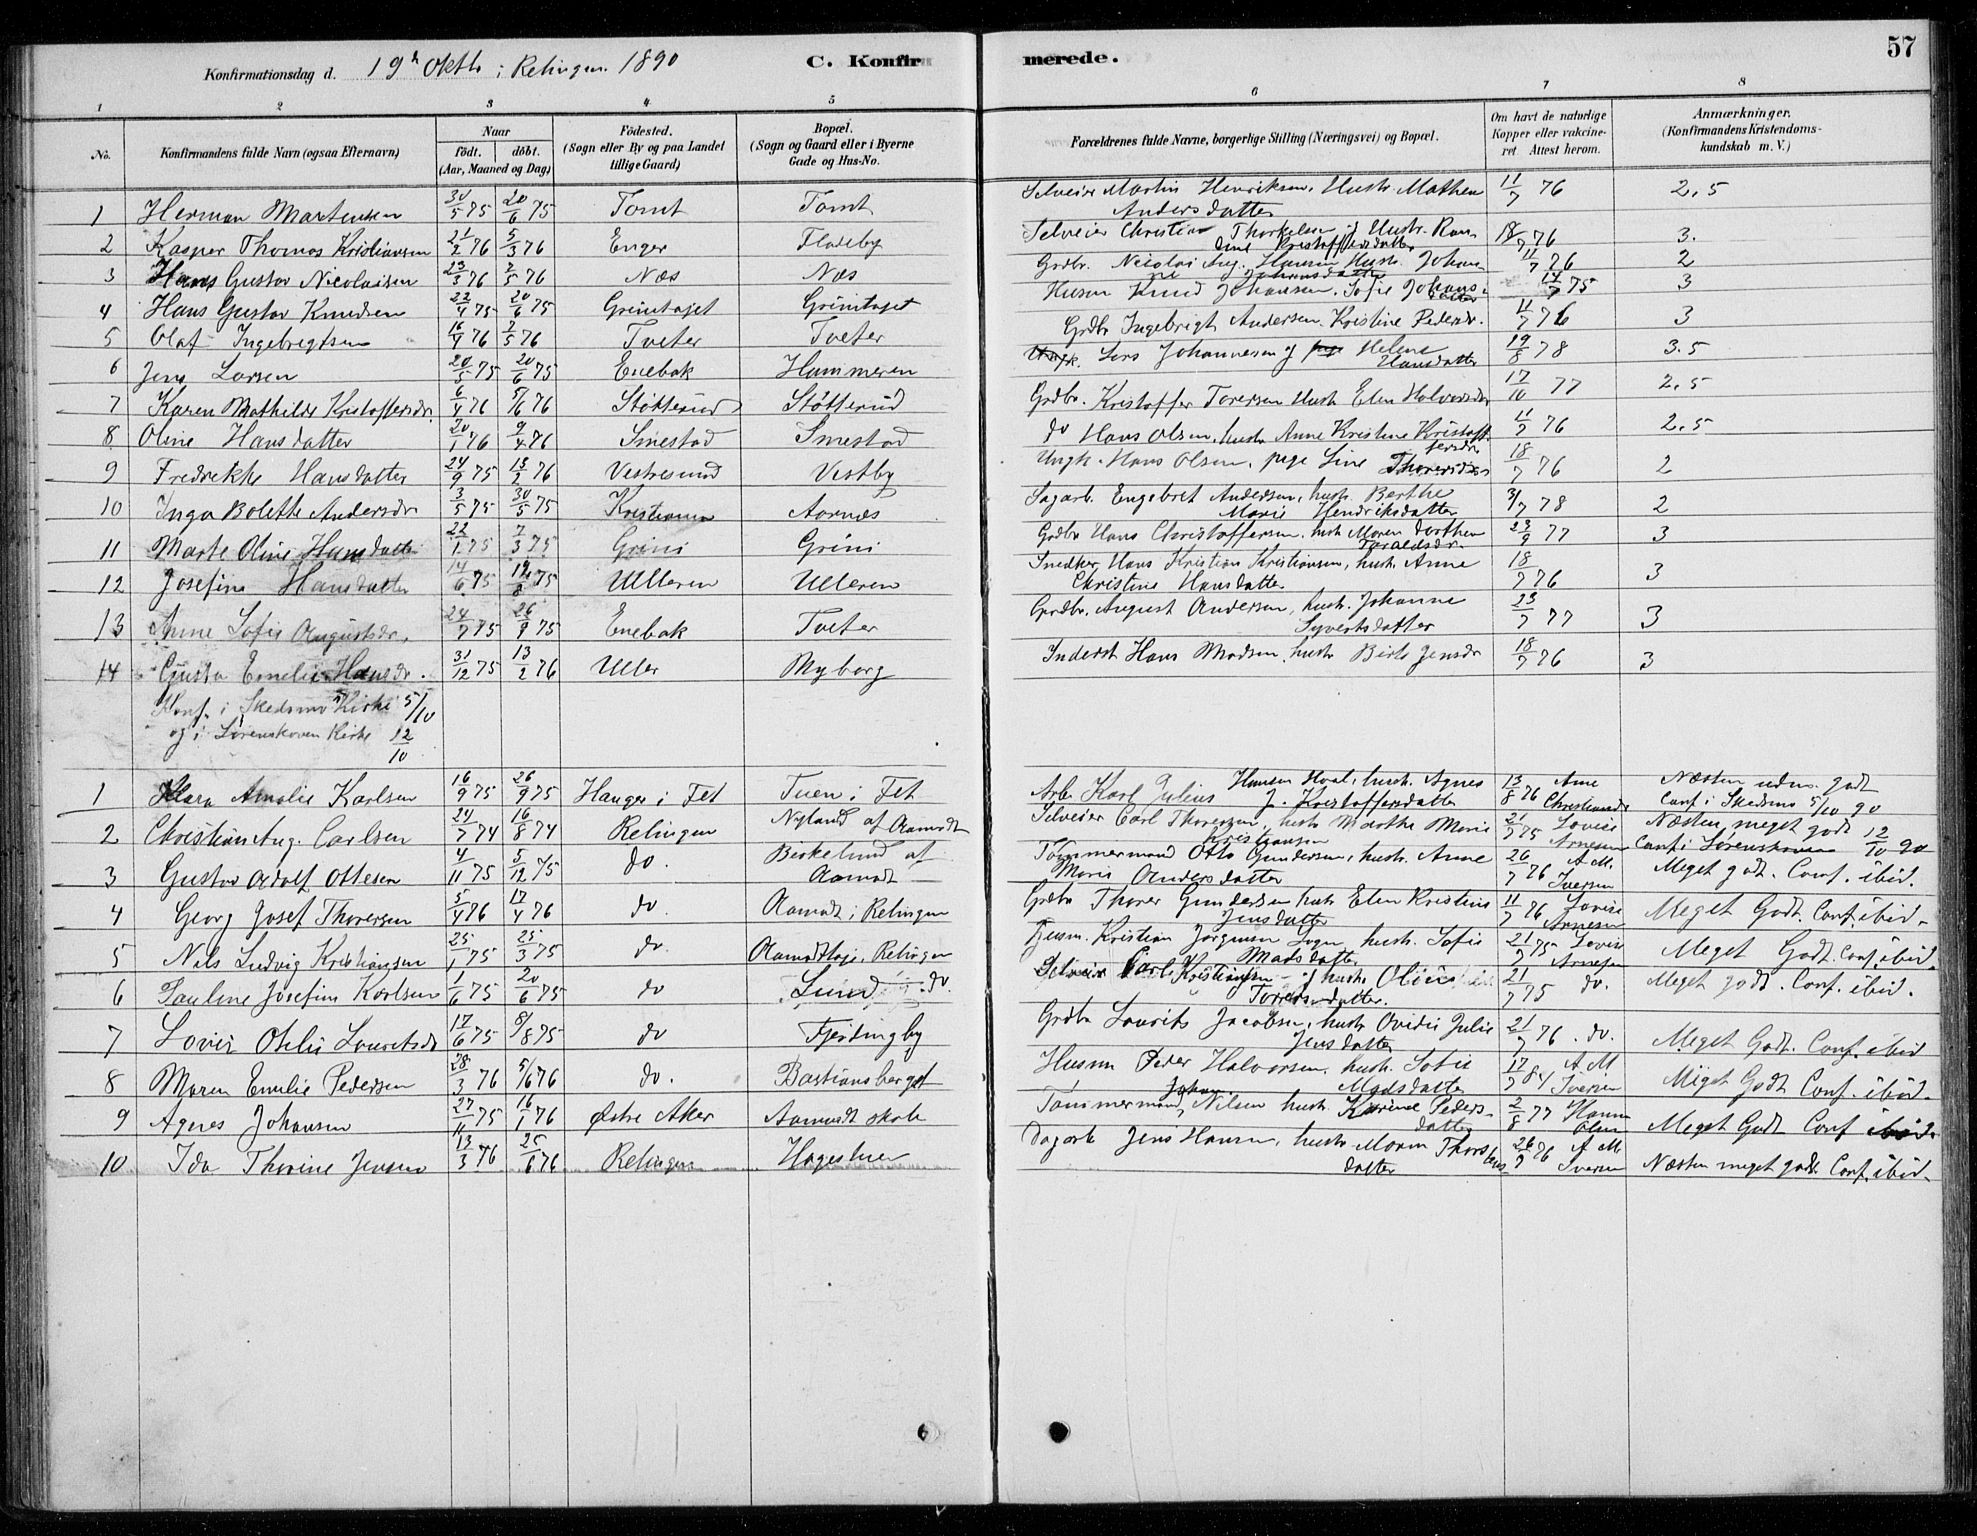 57
Konfirmationsdag d. 19de Oktb i Relingen 1890 C. Konfirmerede.
1 2 3 4 5 6 7 8
No. Konfirmandens fulde Navn (ogsaa Efternavn) Naar födt. döbt. (Aar, Maaned og Dag) Födested. (Sogn eller By og paa Landet tillige Gaard) Bopæl. (Sogn og Gaard eller i Byerne Gade og Hus-No. Forældrenes fulde Navne, borgerlige Stilling (Næringsvei) og Bopæl. Om havt de naturlige Kopper eller vakcineret Attest herom. Anmærkninger. (Konfirmandens Kristendomskundskab m. V.)
1 Herman Martinsen 30/5 75 20/6 75 Tomt Tomt Selveier Martin Henriksen, Hustr. Mathea Andersdatter 11/7 76 2,5
2 Kasper Thomas Kristiansen 21/2 76 5/3 76 Enger Fladeby Selveier Christian Thorkelsen og Hustr. Kristoffersdatter 18/7 76 3.
3 Hans Gustav Nicolaisen 23/3 76 7/5 76 Næs Næs Grdbr. Nicolai Aug. Hansen Hustr. Johanne Johansdatter 11/7 76 2
4 Hans Gustav Knudsen 22/4 75 20/6 75 Grinitajet Grinitajet Husm Knud Johansen. Sofie Johansdatter 17/7 75 3
5 Olaf Ingebregtsen 16/4 76 7/5 76 Tveter Tveter Grdbr Ingebrigt Andersen. Kristine Pedersdr. 11/7 76 3
6 Jens Larsen 20/5 75 20/6 75 Enebak Hammeren Ungk. Lars Johannesen og pige Helene Hansdatter 19/8 78 3.5
7 Karen Mathilde Kristoffersdr. 6/4 76 5/6 76 Støtterud Støtterud Grdbr. Kristoffer Toresen Hustr Elen Halvorsdr 17/10 77 2,5
8 Oline Hansdatter 20/1 76 9/4 76 Smestad Smestad do Hans Olsen, hustr Anne Kristine Kristoffersdr 11/7 76 2,5
9 Fredrekke Hansdatter 24/9 75 13/2 76 Vestresund Vestby Ungk. Hans Olsen, pige Line Thoresdr 18/7 76 2
10 Inga Bolette Andersdr 3/5 75 30/5 75 Kristiania Aarnæs Sagarb. Engebret Andersen, hustr. Berthe Marie Hendriksdatter 3/7 78 2
11 Marte Oline Hansdatter 22/1 75 7/3 75 Grini Grini Grdbr Hans Christoffersen, hustr Maren Dorthea Taraldsdr. 23/9 77 3
12 Josefine Hansdatter 14/6 75 19/8 75 Ulleren Ulleren Snedker Hans Kristian Kristiansen, hustr. Anne Christine Hansdatter 18/7 76 3
13 Anne Sofie Augustsdr. 24/7 75 26/9 75 Enebak Tveter Grdbr. August Andersen, hustr. Johanne Syvertsdatter 23/7 77 3
14 Gusta Emelie Hansdr. 31/12 75 13/2 76 Uller Myborg Inderst Hans Madsen, hustr Birte Jensdr 18/7 76 3
Konf. i Skedsmo Kirke 5/10
og i Lørenskoven Kirke 12/10
1 Klara Amalie Karlsen 16/9 75 26/9 75 Hauger i Fet Tuen i Fet Arb. Karl Julius Hansen Hval, hustr. Agnes J. Kristoffersdatter 13/8 76 Ane Christiansdr Næsten udm. godt Conf. i Skedsmo 5/10 90
2 Christian Aug. Carlsen 24/7 74 16/8 74 Relingen Nyland af Aamodt Selveier Carl Thoresen, hustr Marthe Marie Kristiansen 21/7 75 Lovise Arnesen Næsten meget godt Conf. i Lørenskoven 12/10 90
3 Gustav Adolf Ottesen 4/11 75 5/12 75 do. Birkelund af Aamodt Tømmermand Otto Gundersen, hustr. Anne Marie Andersdatter 26/7 76 A M. Iversen Meget godt. Conf. ibid.
4 Georg Josef Thoresen 5/4 76 17/4 76 do Aamodt i Relingen Grdbr Thorer Gundersen hustr Elen Kristine Jensdatter 11/7 76 Lovise Arnesen Meget Godt. Conf. ibid.
5 Nils Ludvig Kristiansen 25/1 75 25/3 75 do. Aamodteje, Relingen Husm. Kristian Jørgensen hustr. Sofie Madsdatter 21/7 75 Lovise Arnesen Meget Godt. Conf. ibid.
6 Pauline Josefine Karlsen 1/6 75 20/6 75 do Lund do. Selveier Carl Kristiansen og hustr. Oline Toresdatter. 21/7 75 do. Meget godt. Conf. ibid.
7 Lovise Otelie Lauritsdr 17/6 75 8/8 75 do Fjerdingby Grdbr Laurits Jacobsen, hustr Ovidia Julie Jensdatter 21/7 76 do Meget Godt. Conf. ibid
8 Maren Emilie Pedersen 28/3 76 5/6 76 do. Bastiansberget Husm Peder Halvorsen, hustr. Sofie Madsdatter 17/7 84 A M Iversen Meget Godt Conf. ibid.
9 Agnes Johansen 27/11 75 16/1 76 Østre Aker Aamodt skole Tømmermand Johan Nilsen hustr. Karine Pedersdatter 2/8 77 Hanna Olsen Meget Godt Conf ibid.
10 Ida Thorine Jensen 13/3 76 25/6 76 Relingen Hageluen Dagarb Jens Hansen, hustr Maren Thorsdatter 26/9 76 A M Iversen Næsten meget godt Conf. ibid.